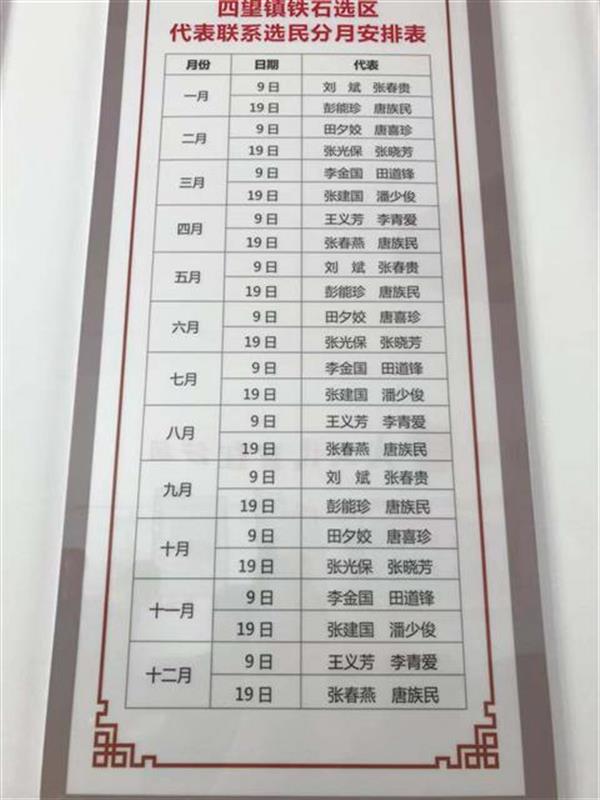 四望镇铁石选区
代表联系选民分月安排表
月份 日期 代表
一月 9日 刘 斌 张春贵
19日 彭能珍 唐族民
二月 9日 田夕姣 唐喜珍
19日 张光保 张晓芳
三月 9日 李金国 田道锋
19日 张建国 潘少俊
四月 9日 王义芳 李青爱
19日 张春燕 唐族民
五月 9日 刘 斌 张春贵
19日 彭能珍 唐族民
六月 9日 田夕姣 唐喜珍
19日 张光保 张晓芳
七月 9日 李金国 田道锋
19日 张建国 潘少俊
八月 9日 王义芳 李青爱
19日 张春燕 唐族民
九月 9日 刘 斌 张春贵
19日 彭能珍 唐族民
十月 9日 田夕姣 唐喜珍
19日 张光保 张晓芳
十一月 9日 李金国 田道锋
19日 张建国 潘少俊
十二月 9日 王义芳 李青爱
19日 张春燕 唐族民